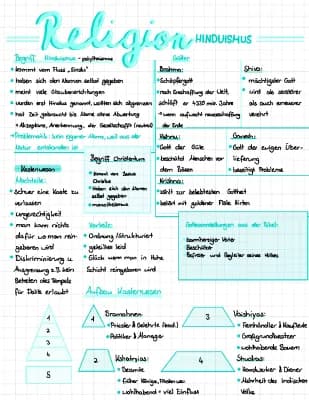 Religion HINDUISMUS
Begriff Hinduismus - polytheismus
kommt vom Fluss "Sindu"
haben sich den Namen selbst gegeben
meint viele Glaubensrichtungen
wurden erst Hindus genannt, wollten sich abgrenzen
hat Zeit gebraucht bis Name ohne Abwertung
Akzeptanz, Anerkennung der Gesellschaft (neutral)
Problematik: kein eigener Name, weil aus der
Natur entstanden ist
Kastenwesen
Nachteile:
Schwer eine Kaste zu
verlassen
Ungerechtigkeit
man kann nichts
dafür wo man rein-
geboren wird
Diskriminierung u.
Ausgrenzung z.B. kein
Betreten des Tempels
für Dalits erlaubt
Begriff Christentum
kommt von Jesus
Christus
haben sich den Namen
selbst gegeben
monotheismus
Vorteile:
Ordnung/Strukturiert
geholfen
Glück wenn man in hohe
Schicht reingeboren wird
Götter
Brahma:
Schöpfergott
nach Erschaffung der Welt,
schläft er 4320 mio. Jahre
wenn aufwacht
der Erde
Vishnu:
Gott der Güte
beschützt Menschen vor
dem Bösen
Krishna:
zählt zur beliebtesten Gottheit
Flöte
Shiva:
mächtigster Gott
wird als zerstörer
als auch erneuerer
verehrt
Ganesh:
Gott der ewigen Über-
lieferung
beseitigt Probleme
Gottesvorstellungen aus der Bibel:
barmherziger Vater
Beschützer
Befreier und Begleiter seines Volkes
Aufbau Kastenwesen
1
2
3
4
5
1
Bramahnen:
Priester & Gelehrte
Politiker & Manager
2
Kshatriyas:
Beamte
früher Könige,
wohlhabend + viel Einfluss
3
Vaishiyas:
Fernhändler & Kaufleute
Großgrundbesitzer
wohlhabende Bauern
4
Shudras:
Handwerker & Diener
Mehrheit des Indischen
Volks